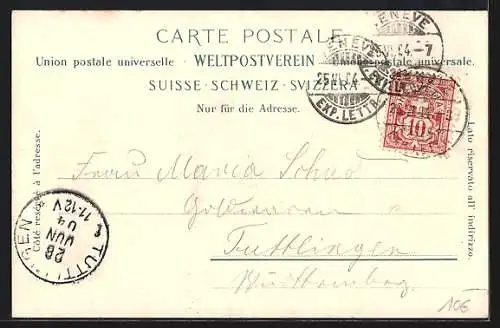 CARTE POSTALE
Union postale universelle. WELTPOSTVEREIN postale universale.
SUISSE · SCHWEIZ · SVIZZERA
Nur für die Adresse.
GENEVE
VI.04.-7
GENEVE
25.VI.04
EXP. LETTR.
10
Côté réservé à l'adresse.
Lato riservato all' indirizzo.
Frau Maria
Tuttlingen
Württemberg
TUTTLINGEN
26
JUN
04
11-12V
10€